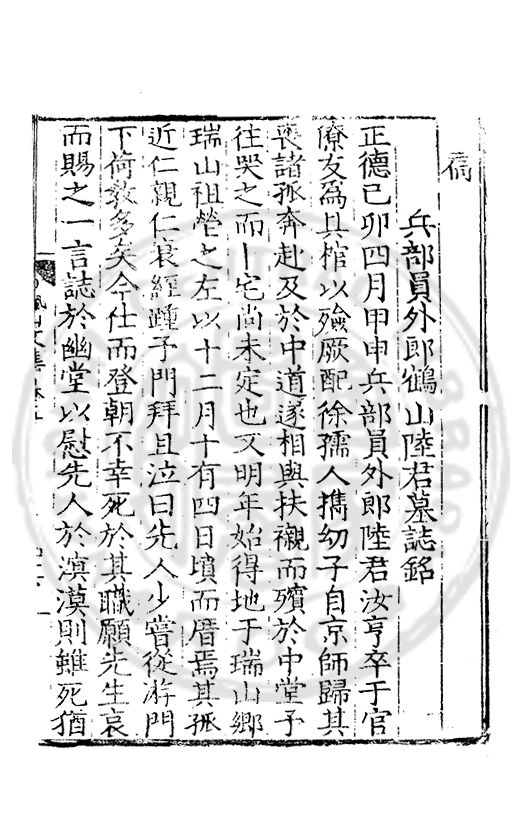 雋
兵部員外郎鶴山陸君墓誌銘
正德己卯四月甲申兵部員外郎陸君汝亨卒于官
僚友爲具棺以殮厥配徐孺人携幼子自京師歸其
喪諸孤奔赴及於中道遂相與扶襯而殯於中堂予
往哭之而卜宅尚未定也又明年始得地于瑞山鄉
瑞山祖塋之左以十二月十有四日墳而厝焉其孤
近仁親仁衰絰踵予門拜且泣曰先人少嘗從游門
下荷教多矣今仕而登朝不幸死於其職願先生哀
而賜之一言誌於幽堂以慰先人於溟漠則雖死猶
山文集